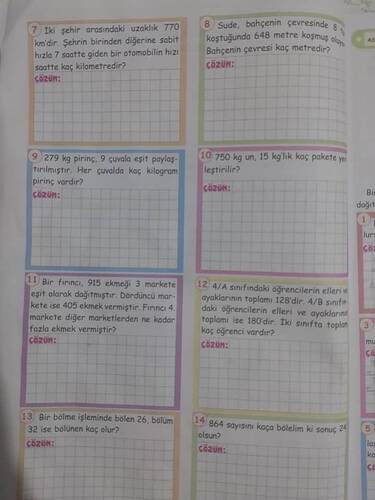 7 İki şehir arasındaki uzaklık 770
km'dir. Şehrin birinden diğerine sabit
hızla 7 saatte giden bir otomobilin hızı
saatte kaç kilometredir?
ÇÖZÜM:
8 Sude, bahçenin çevresinde 8
koştuğunda 648 metre koşmuş
Bahçenin çevresi kaç metredir?
ÇÖZÜM:
9 279 kg pirinç, 9 çuvala eşit paylaş-
tırılmıştır. Her çuvalda kaç kilogram
pirinç vardır?
ÇÖZÜM:
10 750 kg un, 15 kg'lık kaç pakete yer
leştirilir?
ÇÖZÜM:
11 Bir fırıncı, 915 ekmeği 3 markete
eşit olarak dağıtmıştır. Dördüncü mar-
kete ise 405 ekmek vermiştir. Fırıncı 4.
markete diğer marketlerden ne kadar
fazla ekmek vermiştir?
ÇÖZÜM:
12 4/A sınıfındaki öğrencilerin elleri ve
ayaklarının toplamı 128'dir. 4/B sınıfın
daki öğrencilerin elleri ve ayaklarının
toplamı ise 180'dir. İki sınıfta toplam
kaç öğrenci vardır?
ÇÖZÜM:
13 Bir bölme işleminde bölen 26, bölüm
32 ise bölünen kaç olur?
ÇÖZÜM:
14 864 sayısını kaça bölelim ki sonuç 24
olsun?
ÇÖZÜM:
Bir
dağıt
1
3
5